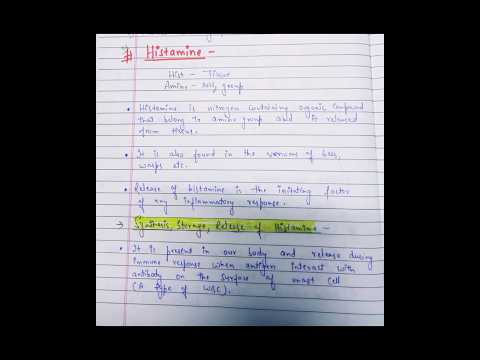 # Histamine -
Hist - Tissue
Amine - NH₂ group
• Histamine is nitrogen containing organic compound
that belong to amino group and is released
from tissue.
• It is also found in the venoms of bees,
wasps etc.
• Release of histamine is the initiating factor
of any inflammatory response.
→ Synthesis, Storage, Release of Histamine -
• It is present in our body and release during
immune response when antigen interact with
antibody on the surface of mast cell
(A type of WBC).